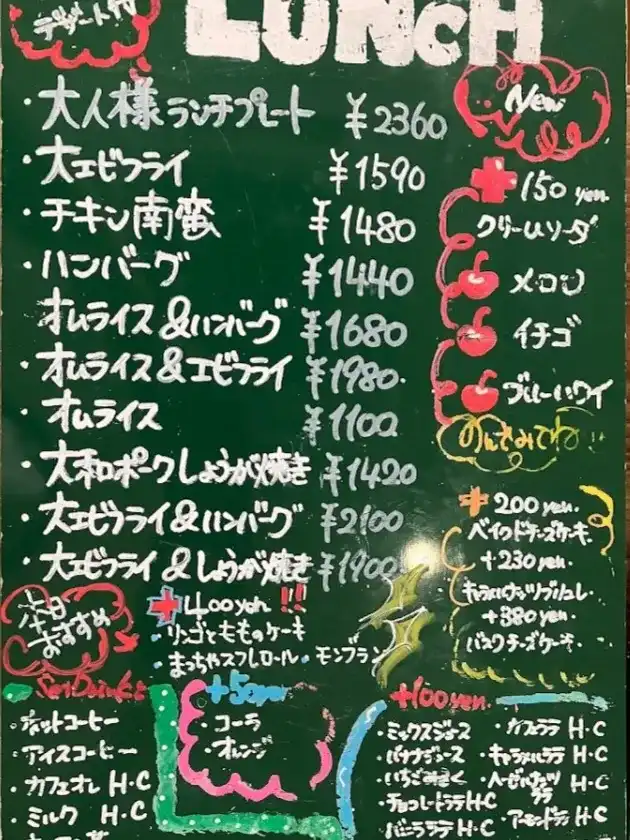 デザート付
LUNCH
・大人様ランチプレート ¥2360
・大エビフライ ¥1590
・チキン南蛮 ¥1480
・ハンバーグ ¥1440
オムライス&ハンバーグ ¥1680
・オムライス&エビフライ ¥1980.
・オムライス ¥1100
・大和ポークしょうが焼き ¥1420
・大エビフライ&ハンバーグ ¥2100
・大エビフライ&しょうが焼き ¥1900
New
+150 yen.
クリームソーダ
メロン
イチゴ
ブルーハワイ
のんでみてね!!
+200 yen.
ベイクドチーズケーキ.
+230 yen.
キャラメルナッツブリュレ.
+380 yen.
バスクチーズケーキ.
本日おすすめ
+400yen !!
・リンゴとももの ケーキ
・まっちゃスフレロール・モンブラン
Set Drink
・ホットコーヒー
・アイスコーヒー
・カフェオレ H・C
・ミルク H・C
+50yen
・コーラ
・オレンジ
+100yen.
・ミックスジュース
・バナナジュース
・いちごみるく
・チョコレートラテH・C
・バニララテ H・C
・カフェラテ H・C
・キャラメルラテ H・C
・ヘーゼルナッツラテ H・C
・アーモンドラテ H・C